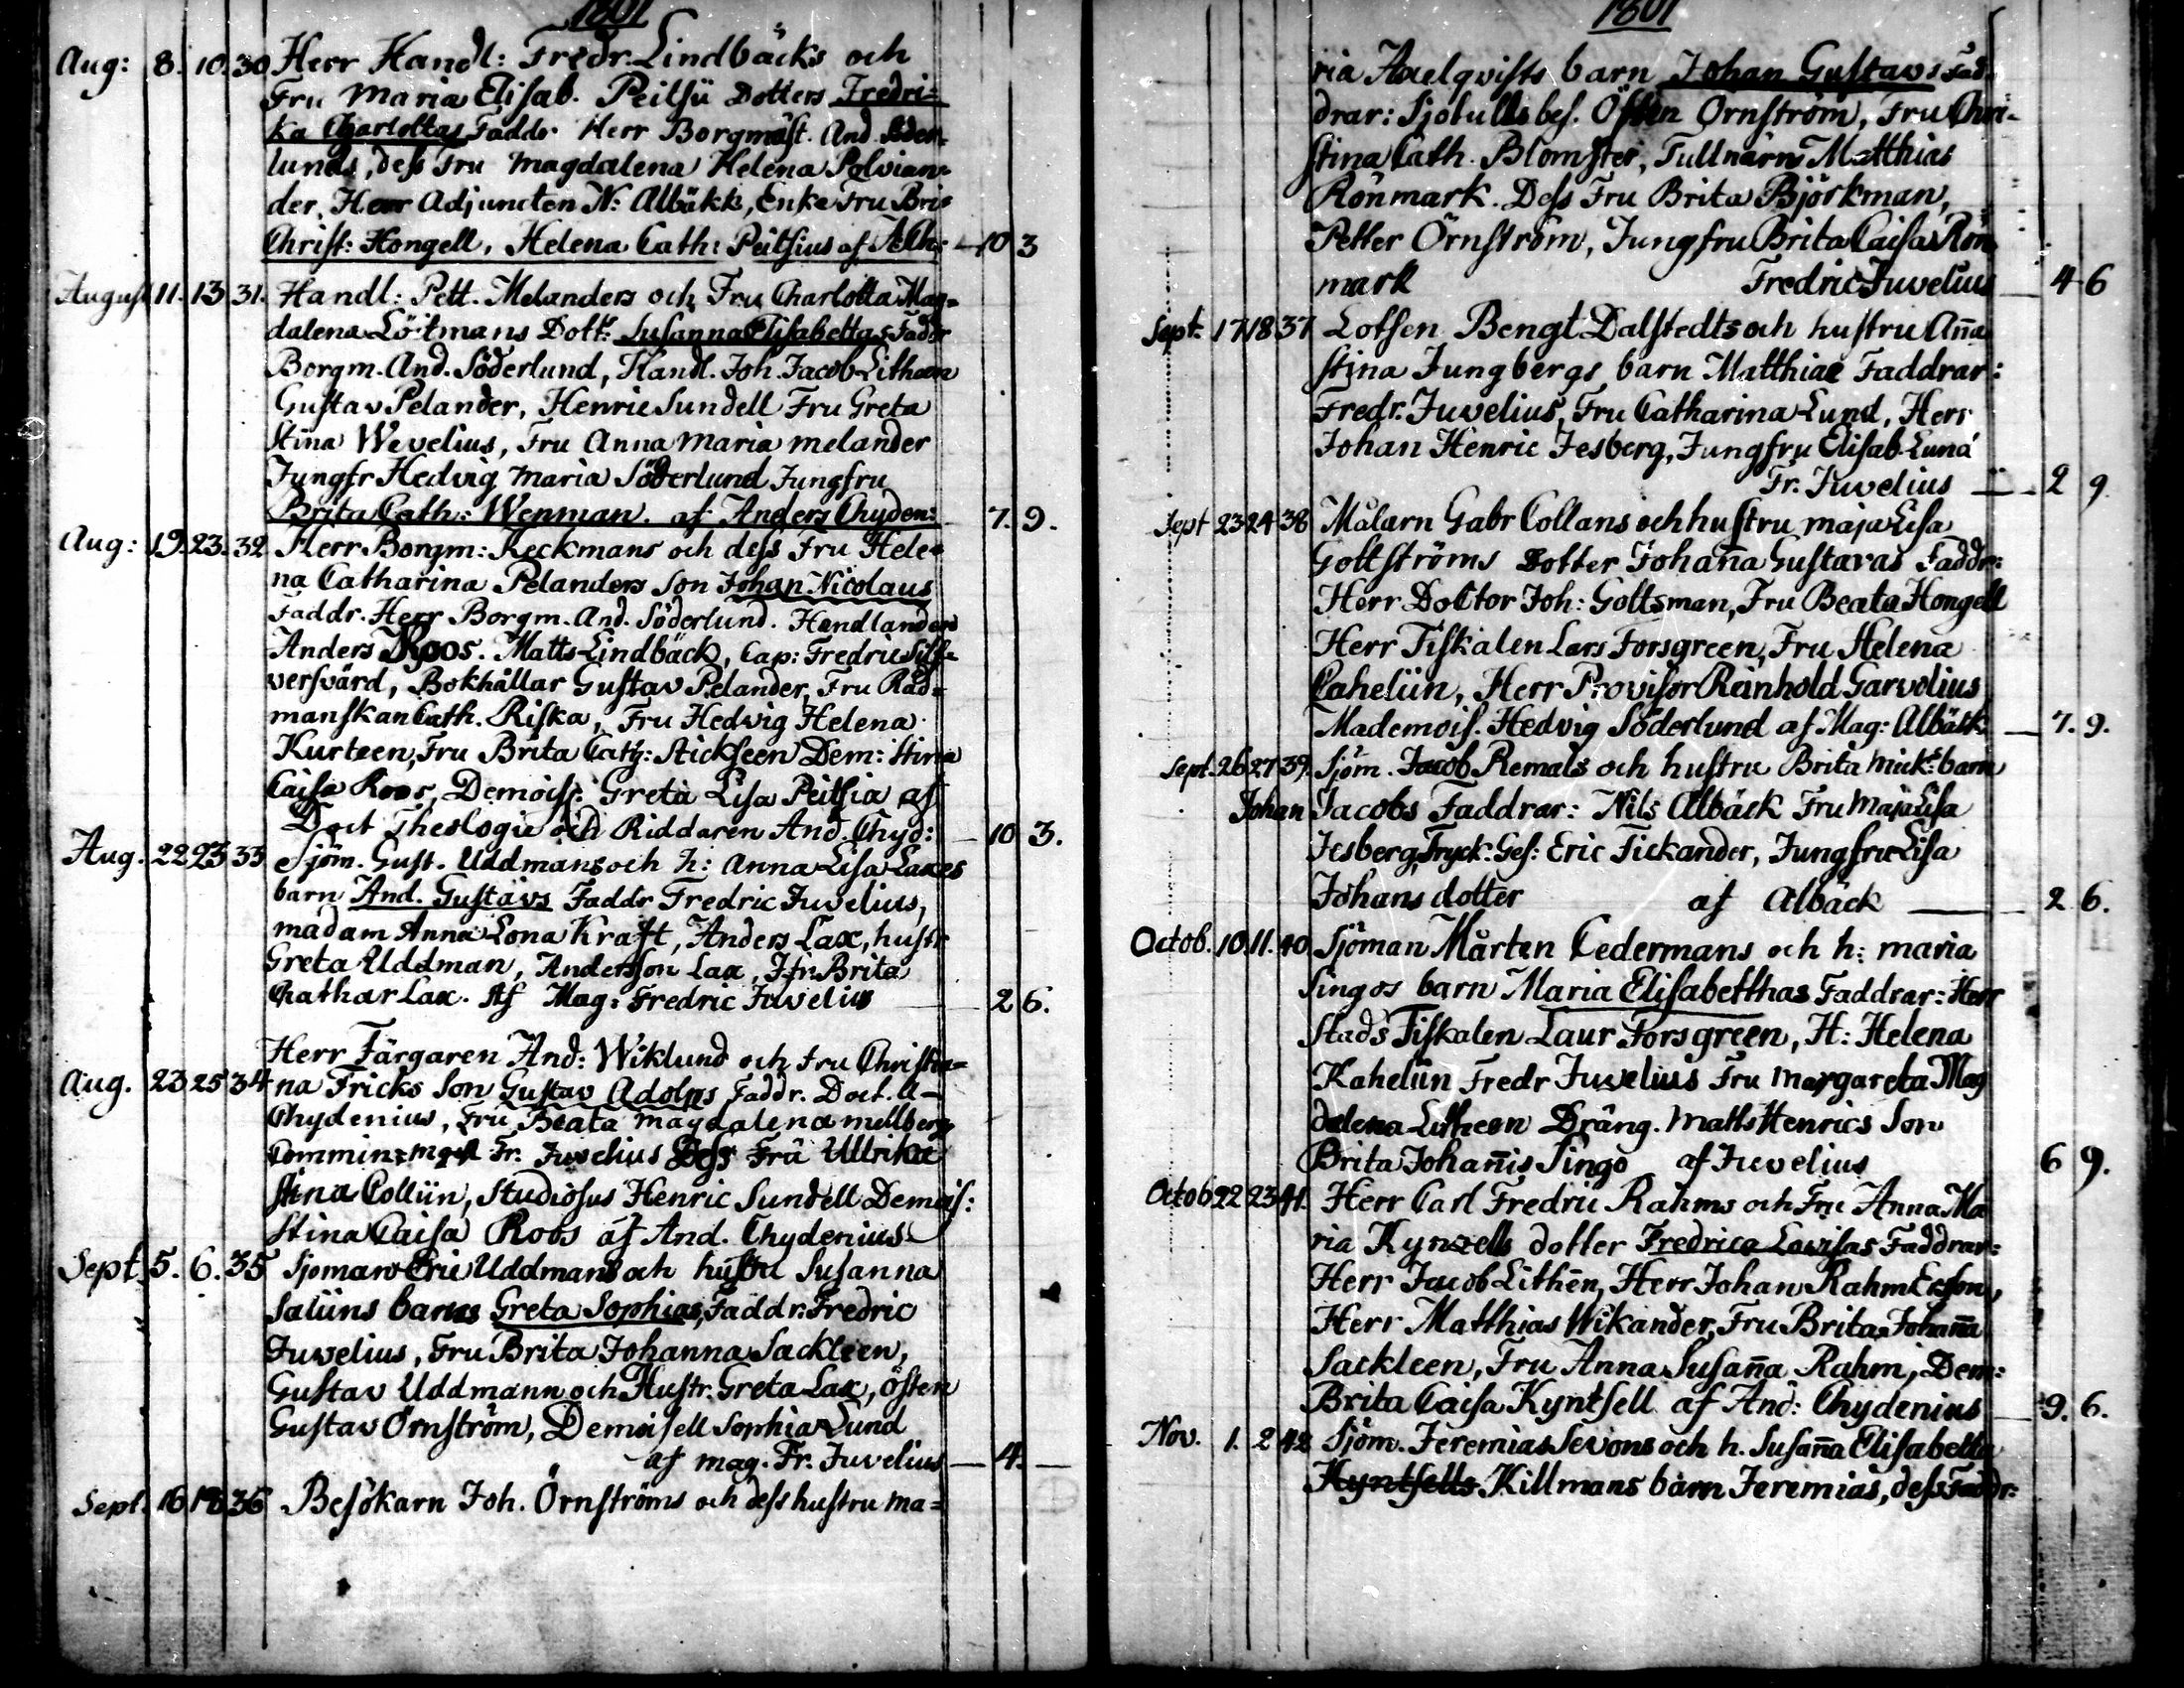 1801
Aug: 8. 10. 30 Herr Handl: Fredr. Lindbäcks och
Fru Maria Elisab. Peitsii Dotters Fredri=
ka Charlottas Faddr Herr Borgmäst. And. Söder=
lunds, dess Fru Magdalena Helena Polvian=
der, Herr Adjuncten N: Albäkk, Enke Fru Bri=
Christ: Hongell, Helena Cath: Peitsius af A Ch: — 10 3
August 11. 13 31. Handl: Pett. Melanders och Fru Charlotta Mag=
dalena Löitmans Dott: Susanna Elisabettas Faddr
Borgm. And. Söderlund, Handl. Joh. Jacob Litheen
Gustav Pelander, Henric Sundell Fru Greta
Stina Wevelius, Fru Anna Maria Melander
Jungfr Hedvig Maria Söderlund Jungfru
Brita Cath: Wenman. af Anders Chyden: 7. 9.
Aug: 19. 23. 32 Herr Borgm: Keckmans och dess Fru Hele=
na Catharina Pelanders Son Johan Nicolaus
Faddr. Herr Borgm. And. Söderlund. Handlanders
Anders Roos. Matts Lindbäck, Cap: Fredric Silf=
versvärd, Bokhållar Gustav Pelander, Fru Råd=
manskan Cath. Riska, Fru Hedvig Helena
Kurteen, Fru Brita Cath: Stickseen Dem: Stina
Caisa Roos, Demoiss: Greta Lisa Peitsia af
Doct Theologie och Riddaren And. Chyd: — 10 3.
Aug. 22 23 33 Sjöm. Gust. Uddmans och h: Anna Lisa Laxes
barn And. Gustavs Faddr Fredric Juvelius,
madam Anna Lona Kraftt, Anders Lax, hustr
Greta Uddman, Andersson Lax, Jfr. Brita
Chathar Lax. Af Mag: Fredric Juvelius — 2 6.
Herr Färgaren And: Wiklund och Fru Christi=
Aug. 23 25 34 na Fricks Son Gustav Adolps Faddr. Doct. A—
Chydenius, Fru Beata Magdalena Mellberg
Commin: Fr. Juvelius Dess Fru Ullrika
Stina Colliin, Studiosus Henric Sundell Demois:
Stina Caisa Roos af And. Chydenius
Sept. 5. 6. 35 Sjöman Eric Uddmans och hustru Susanna
Saliins barns Greta Sophias, Faddr. Fredric
Juvelius, Fru Brita Johanna Sackleen,
Gustav Uddmann och Hustr. Greta Lax, östen
Gustav Örnström, Demoisell Sophia Lund
af mag. Fr. Juvelius — 4. —
Sept. 16 18 36 Besökarn Joh. Örnströms och dess hustru Ma=
1801
ria Axelqvists barn Johan Gustavs Fad=
drar: Sjötullsbes. Östen Örnström, Fru Chri=
stina Cath. Blomster, Tullnärn Matthias
Rönmark. Dess Fru Brita Björkman,
Petter Örnström, Jungfru Brita Caisa Rön
mark Fredric Juvelius — 4 6
Sept. 17 18 37 Lotsen Bengt Dalstedts och hustru Anna
Stina Jungbergs barn Matthiae Faddrar:
Fredr. Juvelius, Fru Catharina Lund, Herr
Johan Henric Jesberg, Jungfru Elisab. Lund
Fr. Juvelius — 2 9.
Sept 23 24 38 Målarn Gabr Collans och hustru maja Lisa
Gottströms Dotter Johanna Gustavas Faddr:
Herr Docttor Joh: Gottsman, Fru Beata Hongell
Herr Fiskalen Lars Forsgreen, Fru Helena
Caheliin, Herr Provisor Reinhold Garvolius
Mademois. Hedvig Söderlund af Mag: Albäck — 7. 9.
Sept. 26 27 39. Sjöm. Jacob Remals och hustru Brita Mick: barn
Johan Jacobs Faddrar: Nils Albäck Fru Maja Lisa
Jesberg, Tryck: Ges: Eric Tickander, Jungfru Lisa
Johans dotter af Albäck — 2 6.
Octob. 10 11. 40 Sjöman Mårten Cedermans och h: maria
Singos barn Maria Elisabetthas Faddrar: Herr
Stads Fiskalen Laur Forsgreen, H: Helena
Kaheliin Fredr Juvelius Fru Margareta Mag
dalena Litheen Dräng. Matts Henrics Son
Brita Johannis Singo af Juvelius 6 9.
Octob 22 23 41. Herr Carl Fredric Rahms och Fru Anna Ma
ria Kynzells dotter Fredrica Lovisas Faddrar:
Herr Jacob Lithén, Herr Johan Rahm Ersson,
Herr Matthias Wikander, Fru Brita Johanna
Sackleen, Fru Anna Susanna Rahm, Dem:
Brita Caisa Kyntsell af And: Chydenius — 9. 6.
Nov. 1. 2 42 Sjöm. Jeremias Sevons och h. Susanna Elisabetta
Kyntsells Killmans barn Jeremias, dess Faddr: